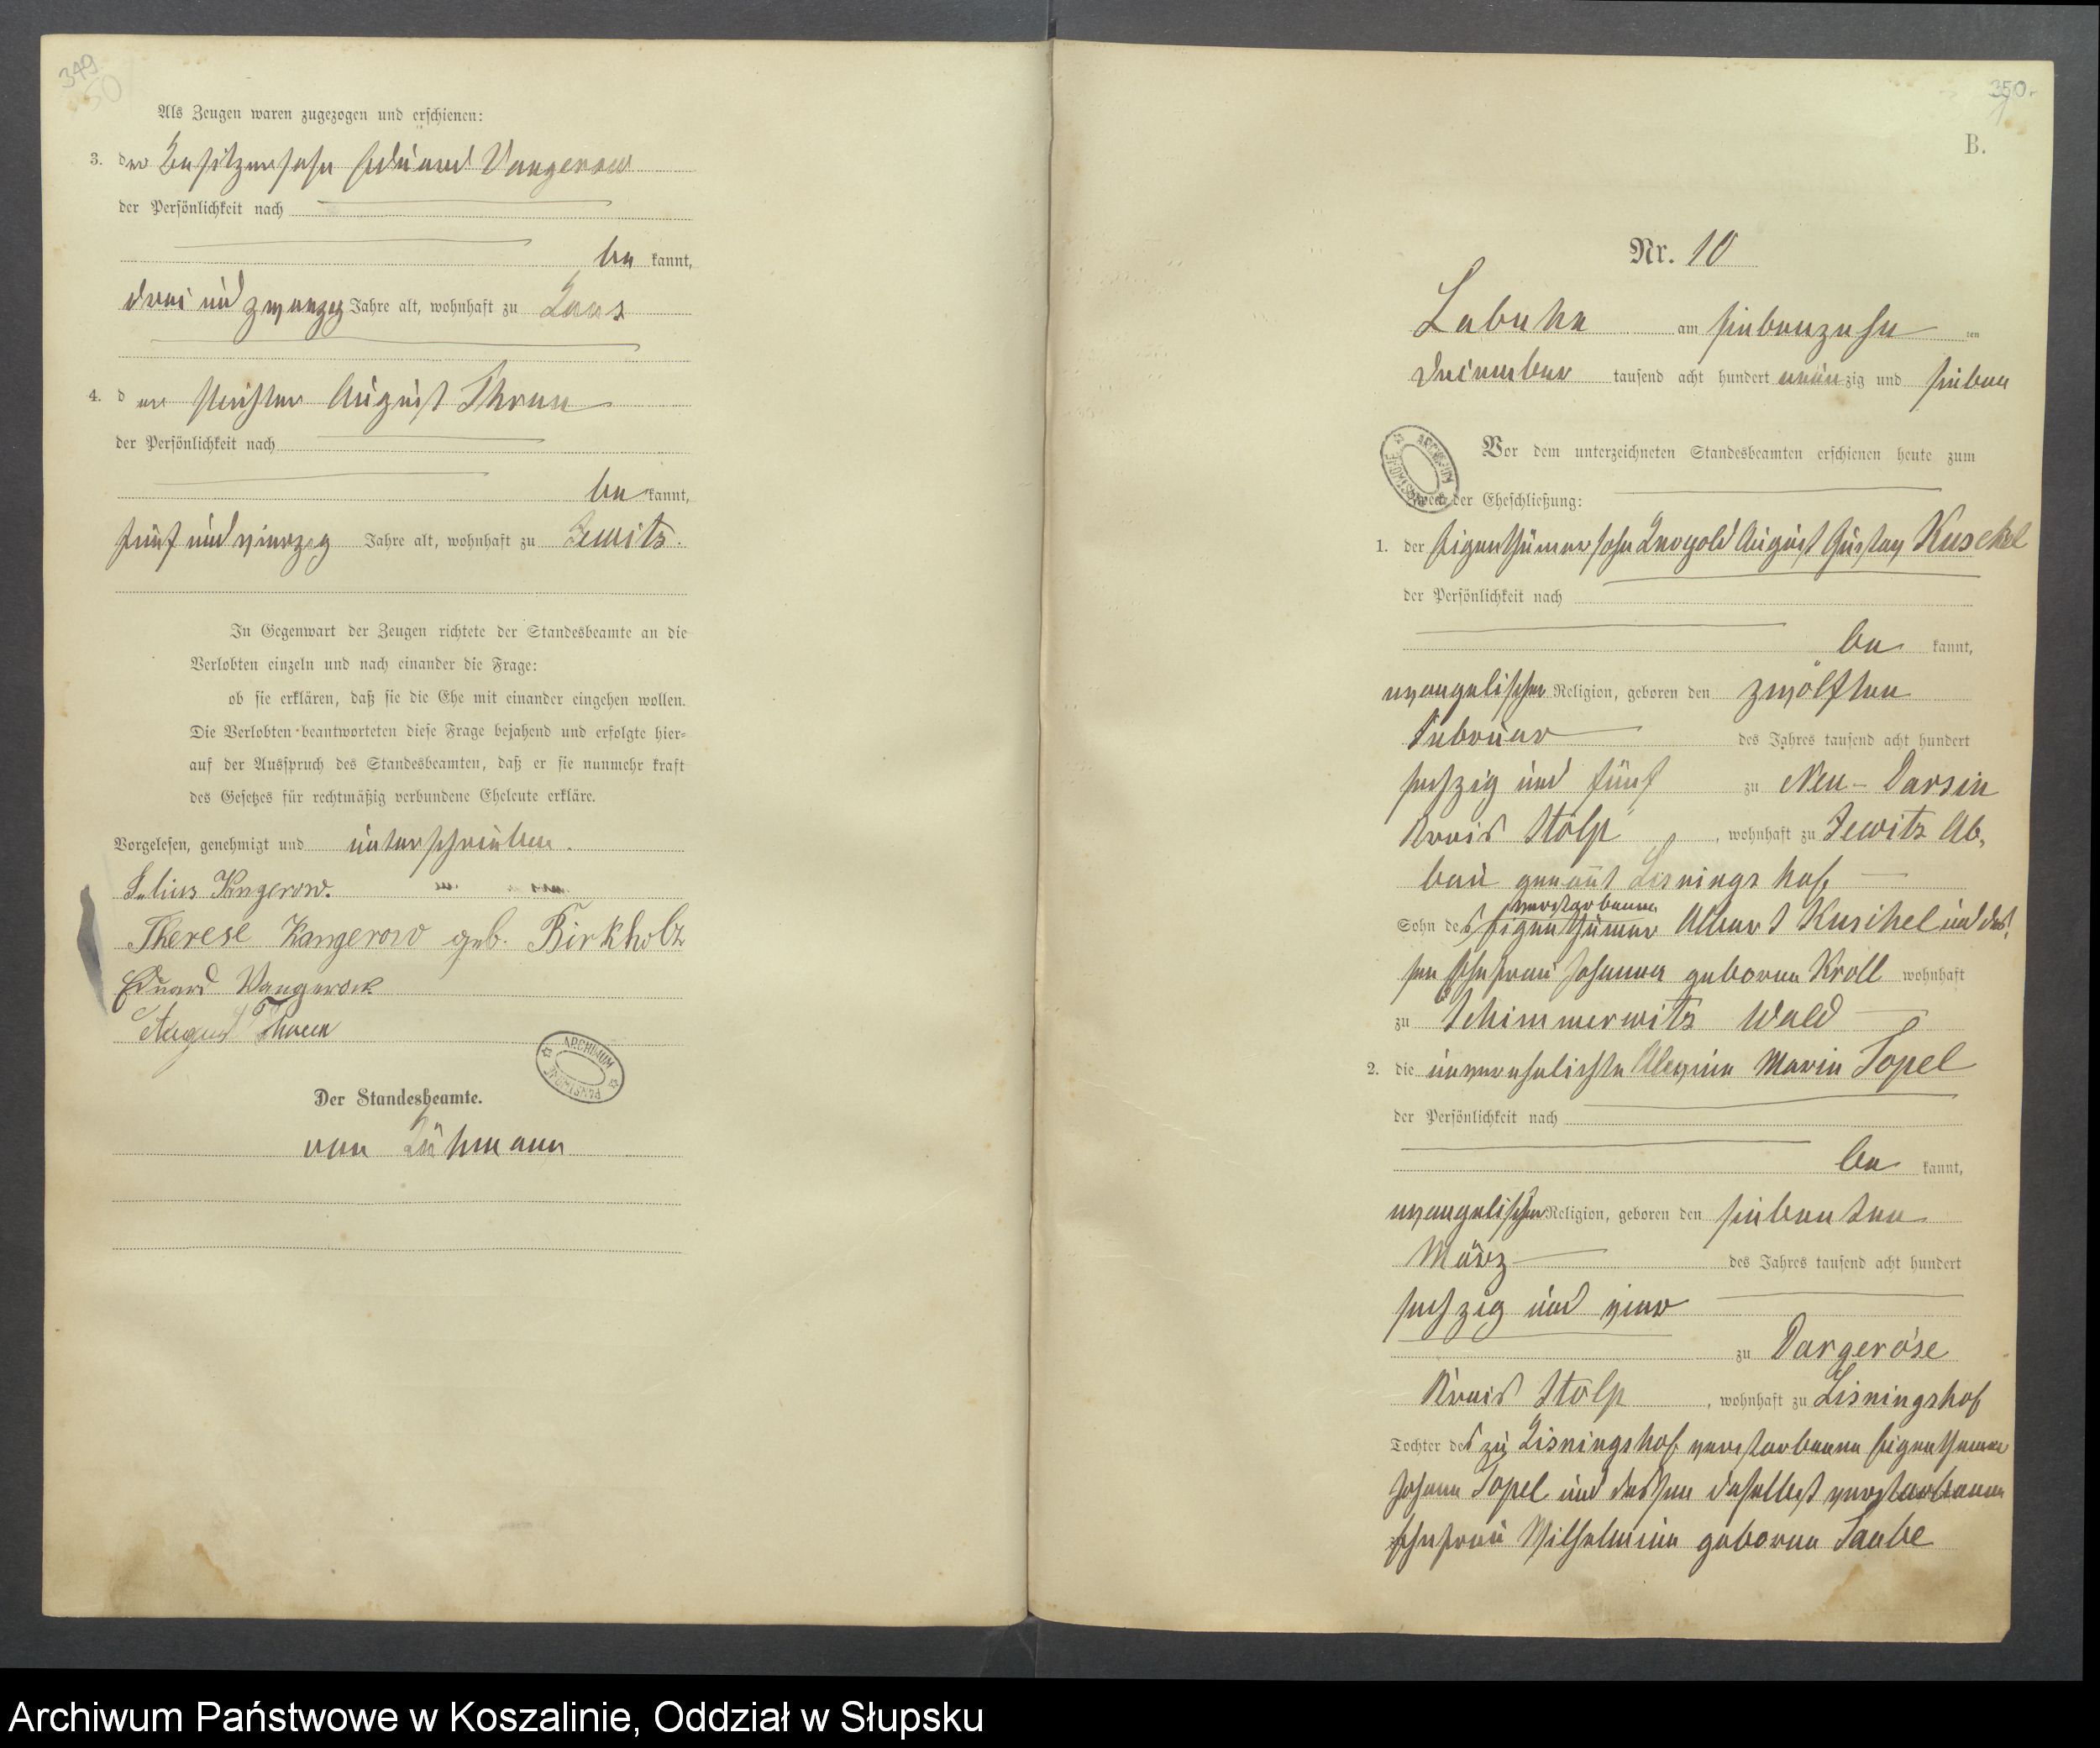 349.
Als Zeugen waren zugezogen und erschienen:
3. der Besitzersohn Eduard Vangerow
der Persönlichkeit nach
be kannt,
drei und zwanzig Jahre alt, wohnhaft zu
4. d er August Thrun
der Persönlichkeit nach
be kannt,
fünf und vierzig Jahre alt, wohnhaft zu Zewitz.
In Gegenwart der Zeugen richtete der Standesbeamte an die
Verlobten einzeln und nach einander die Frage:
ob sie erklären, daß sie die Ehe mit einander eingehen wollen.
Die Verlobten beantworteten diese Frage bejahend und erfolgte hier-
auf der Ausspruch des Standesbeamten, daß er sie nunmehr kraft
des Gesetzes für rechtmäßig verbundene Eheleute erkläre.
Vorgelesen, genehmigt und unterschrieben.
Julius Vangerow.
Therese Vangerow geb. Birkholz
Eduard Vangerow
August Thrun
ARCHIWUM PAŃSTWOWE
Der Standesbeamte.
von
350.
B.
Nr. 10
Labuhn am siebenzehn ten
Dezember tausend acht hundert neunzig und sieben
Vor dem unterzeichneten Standesbeamten erschienen heute zum
Zweck der Eheschließung:
ARCHIWUM PAŃSTWOWE
1. der Eigenthümersohn Leopold August Gustav Kuschel
der Persönlichkeit nach
be kannt,
evangelischer Religion, geboren den zwölften
Februar des Jahres tausend acht hundert
sechzig und fünf zu Neu-Darsin
Kreis Stolp, wohnhaft zu Zewitz Ab-
bau genannt Lisningshof
verstorbenen
Sohn des Eigenthümer Albert Kuschel und des-
sen Ehefrau Johanna geborene Kroll wohnhaft
zu Schimmerwitz Wald
2. die unverehelichte Alwine Marie Topel
der Persönlichkeit nach
be kannt,
evangelischer Religion, geboren den siebenten
März des Jahres tausend acht hundert
sechzig und vier
zu Dargeröse
Kreis Stolp, wohnhaft zu Lisningshof
Tochter des zu Lisningshof verstorbenen Eigenthümer
Johann Topel und dessen daselbst verstorbenen
Ehefrau Wilhelmine geborene Taube
Archiwum Państwowe w Koszalinie, Oddział w Słupsku